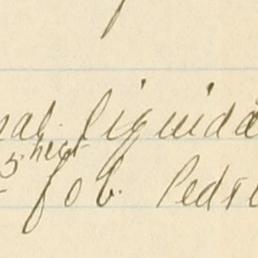 nal. liquida
5 hect
fob. Pedr